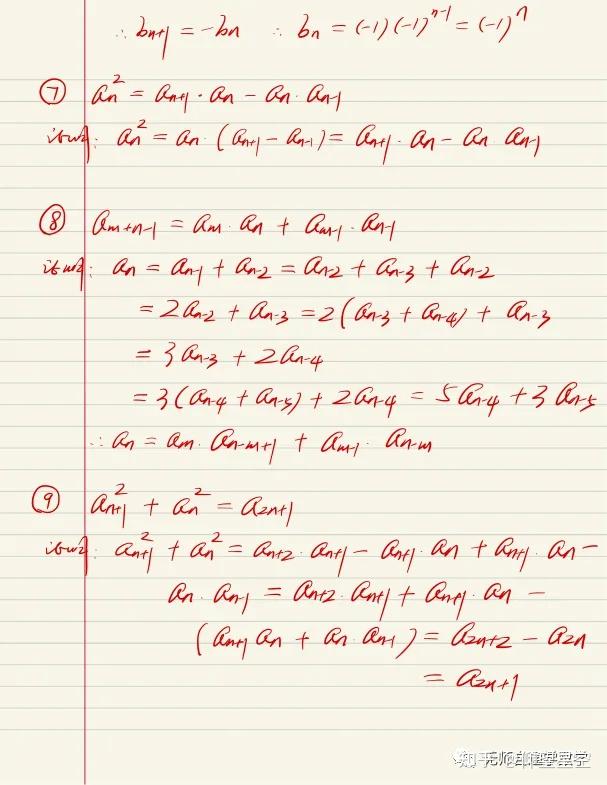 ∴ bn+1 = -bn ∴ bn = (-1)(-1)^n-1 = (-1)^n
⑦ an² = an+1 · an - an · an-1
证明: an² = an · (an+1 - an-1) = an+1 · an - an · an-1
⑧ am+n-1 = am · an + am-1 · an-1
证明: an = an-1 + an-2 = an-2 + an-3 + an-2
= 2an-2 + an-3 = 2(an-3 + an-4) + an-3
= 3an-3 + 2an-4
= 3(an-4 + an-5) + 2an-4 = 5an-4 + 3an-5
∴ an = am · an-m+1 + am-1 · an-m
⑨ an+1² + an² = a2n+1
证明: an+1² + an² = an+2 · an+1 - an+1 · an + an+1 · an -
an · an-1 = an+2 · an+1 + an+1 · an -
(an+1 an + an · an-1) = a2n+2 - a2n
= a2n+1